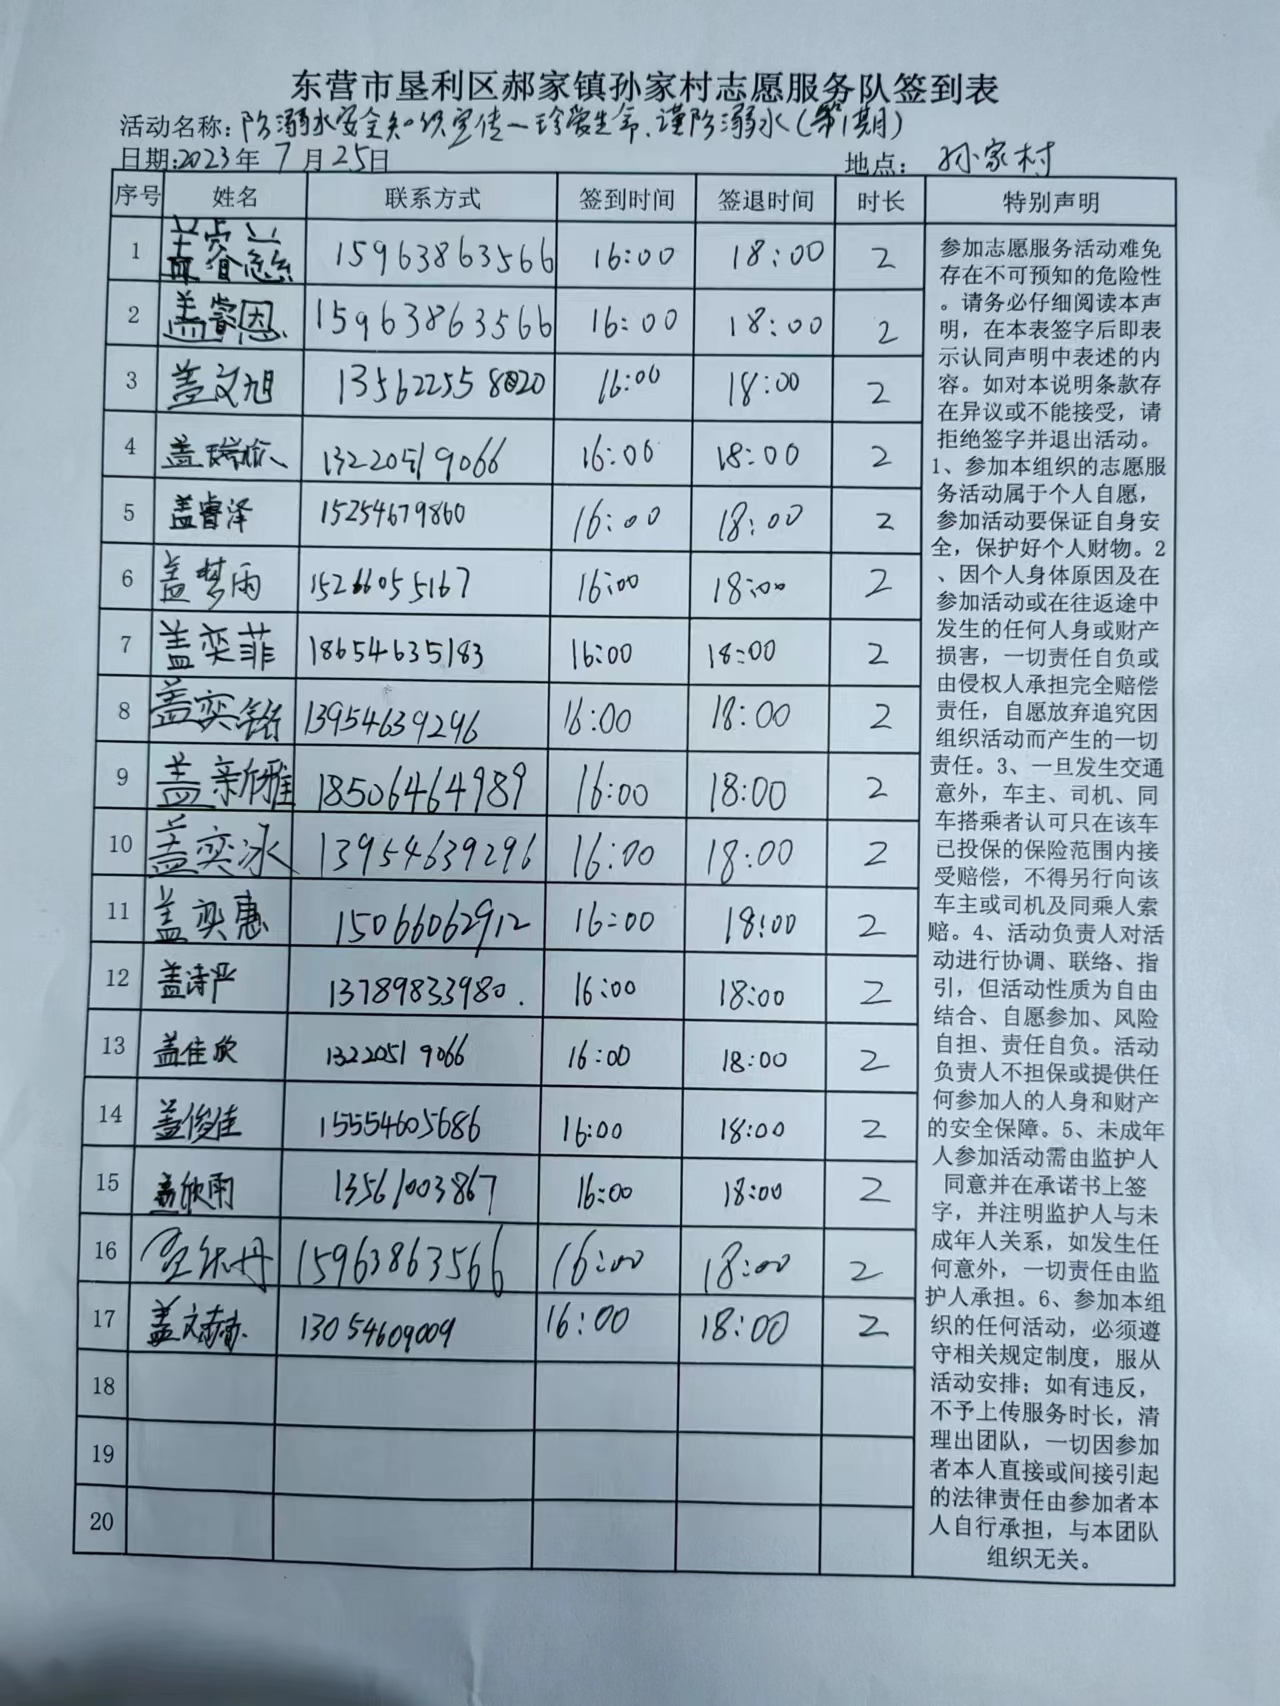 东营市垦利区郝家镇孙家村志愿服务队签到表
活动名称：防溺水安全知识宣传—珍爱生命、谨防溺水（第1期）
日期：2023年7月25日 地点：孙家村
序号 姓名 联系方式 签到时间 签退时间 时长 特别声明
1 盖睿 15963863566 16:00 18:00 2
2 盖睿恩 15963863566 16:00 18:00 2
3 盖文旭 135622558020 16:00 18:00 2
4 盖瑞 13220519066 16:00 18:00 2
5 盖睿泽 15254679860 16:00 18:00 2
6 盖梦雨 15266055167 16:00 18:00 2
7 盖奕菲 18654635183 16:00 18:00 2
8 盖奕铭 13954639296 16:00 18:00 2
9 盖亲雅 18506464989 16:00 18:00 2
10 盖奕冰 13954639296 16:00 18:00 2
11 盖奕惠 15066062912 16:00 18:00 2
12 盖诗严 13789833980. 16:00 18:00 2
13 盖佳欣 13220519066 16:00 18:00 2
14 盖俊佳 15554605686 16:00 18:00 2
15 盖欣雨 13561003867 16:00 18:00 2
16 15963863566 16:00 18:00 2
17 盖文赫 13054609009 16:00 18:00 2
18
19
20
参加志愿服务活动难免
存在不可预知的危险性
。请务必仔细阅读本声
明，在本表签字后即表
示认同声明中表述的内
容。如对本说明条款存
在异议或不能接受，请
拒绝签字并退出活动。
1、参加本组织的志愿服
务活动属于个人自愿，
参加活动要保证自身安
全，保护好个人财物。2
、因个人身体原因及在
参加活动或在往返途中
发生的任何人身或财产
损害，一切责任自负或
由侵权人承担完全赔偿
责任，自愿放弃追究因
组织活动而产生的一切
责任。3、一旦发生交通
意外，车主、司机、同
车搭乘者认可只在该车
已投保的保险范围内接
受赔偿，不得另行向该
车主或司机及同乘人索
赔。4、活动负责人对活
动进行协调、联络、指
引，但活动性质为自由
结合、自愿参加、风险
自担、责任自负。活动
负责人不担保或提供任
何参加人的人身和财产
的安全保障。5、未成年
人参加活动需由监护人
同意并在承诺书上签
字，并注明监护人与未
成年人关系，如发生任
何意外，一切责任由监
护人承担。6、参加本组
织的任何活动，必须遵
守相关规定制度，服从
活动安排；如有违反，
不予上传服务时长，清
理出团队，一切因参加
者本人直接或间接引起
的法律责任由参加者本
人自行承担，与本团队
组织无关。